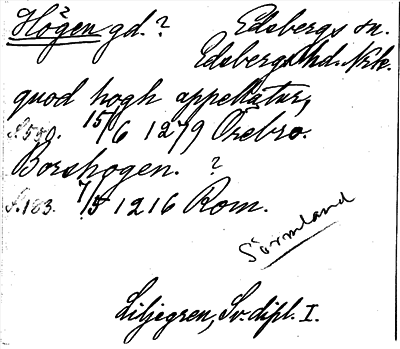 Högen gd.? Edsbergs sn.
Edsbergs hd. Nrk.
quod hogh appellatur,
S. 580. 15/6 1279 Örebro.
Borshogen. ?
S. 183. 7/5 1216 Rom.
Sörmland
Liljegren, Sv. dipl. I.